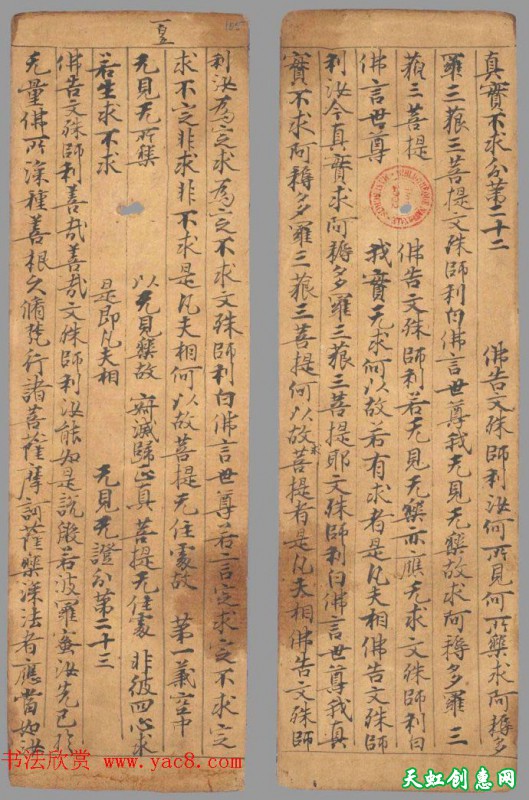 真實不求分第二十二　佛告文殊師利汝何所見何所樂求阿耨多
羅三藐三菩提文殊師利白佛言世尊我无見无樂故求阿耨多羅三
藐三菩提　佛告文殊師利若无見无樂亦應无求文殊師利白
佛言世尊　我實无求何以故若有求者是凡夫相佛告文殊師
利汝今真實求阿耨多羅三藐三菩提耶文殊師利白佛言世尊我真
實不求阿耨多羅三藐三菩提何以故求菩提者是凡夫相佛告文殊師
利汝為定求為定不求文殊師利白佛言世尊若言定求定不求定
求不定非求非不求是凡夫相何以故菩提无住處故　第一義空中
无見无所樂　以无見樂故　寂滅歸正真　菩提无住處　非彼四心求
若生求不求　是即凡夫相　无見无證分第二十三
佛告文殊師利善哉善哉文殊師利汝能如是說般若波羅蜜汝先已於
无量佛所深種善根久脩梵行諸菩薩摩訶薩樂深法者應當如汝
书法欣赏 www.yac8.com
天虹创意网